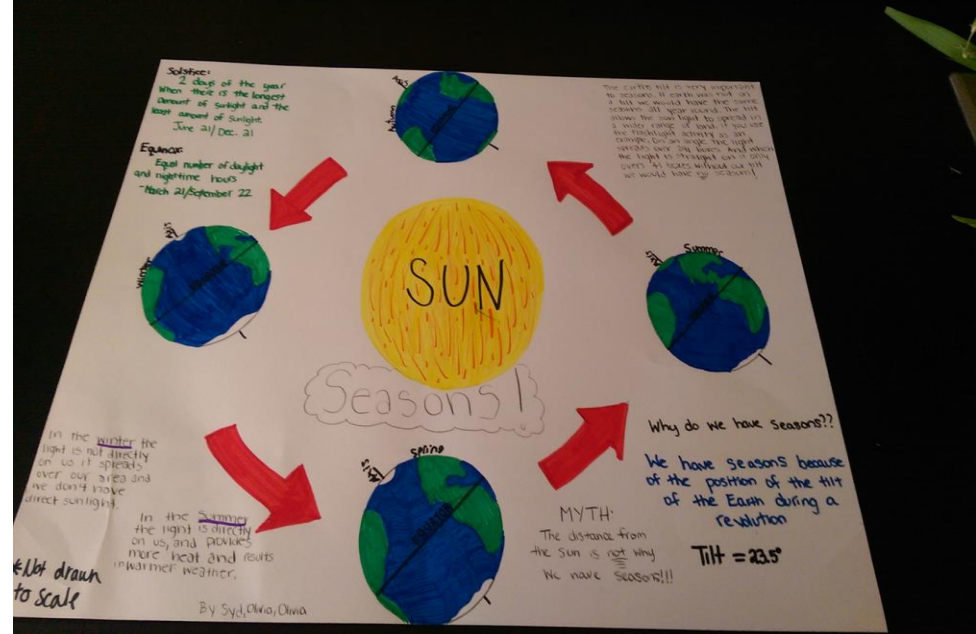 Solstice:
2 days of the year
When there is the longest
amount of sunlight and the
least amount of sunlight.
June 21/Dec. 21
Equinox:
Equal number of daylight
and nighttime hours
-March 21/September 22
Axis
Autumn
The earths tilt is very important
to seasons. If earth was not on
a tilt we would have the same
seasons all year round. The tilt
allows the sun light to spread in
a wider range of land. If you use
the flashlight activity as an
example, on an angle the light
spreads over boxes. And when
the light is straight on it only
covers 41 boxes. Without our tilt
we would have no seasons!
Axis
Winter
SUN
Seasons!
Axis
Summer
Axis
Spring
Equator
In the winter the
light is not directly
on us it spreads
over our area and
we don't have
direct sunlight.
In the Summer
the light is directly
on us, and provides
more heat and results
in warmer weather.
*Not drawn
to scale
By Syd, Olivia, Olivia
MYTH:
The distance from
the sun is not why
We have seasons!!!
Why do we have seasons??
We have seasons because
of the position of the tilt
of the Earth during a
revolution
Tilt = 23.5°